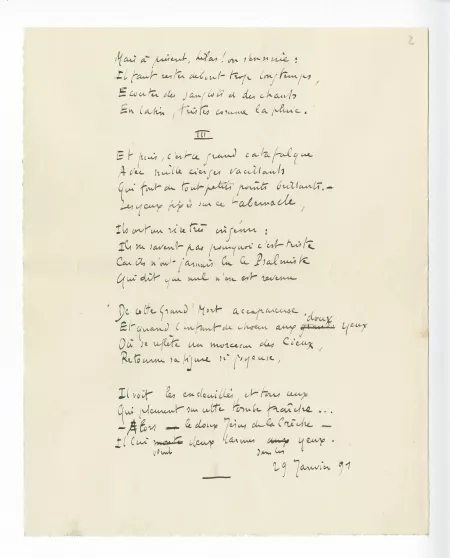 2
Mais à présent, hélas ! on s'ennuie :
Il faut rester debout trop longtemps,
Ecouter des sanglots et des chants
En latin, tristes comme la pluie.
III
Et puis, c'est ce grand catafalque
Avec mille cierges vacillants
Qui font de tout petits points brillants. —
Les yeux fixés sur ce tabernacle,
Ils ont un rire très ingénu :
Ils ne savent pas pourquoi c'est triste
Car ils n'ont jamais lu le Psalmiste
Qui dit que nul n'en est revenu
De cette Grand' Mort accapareuse.
doux
Et quand l'enfant de chœur aux grands yeux
Où se reflète un morceau des Cieux,
Retourne sa figure si joyeuse,
Il voit les endeuillés, et tous ceux
Qui pleurent sur cette tombe fraîche...
— Alors — le doux Jésus de la Crèche —
Il lui deux larmes aux yeux.
dans les
29 Janvier 91